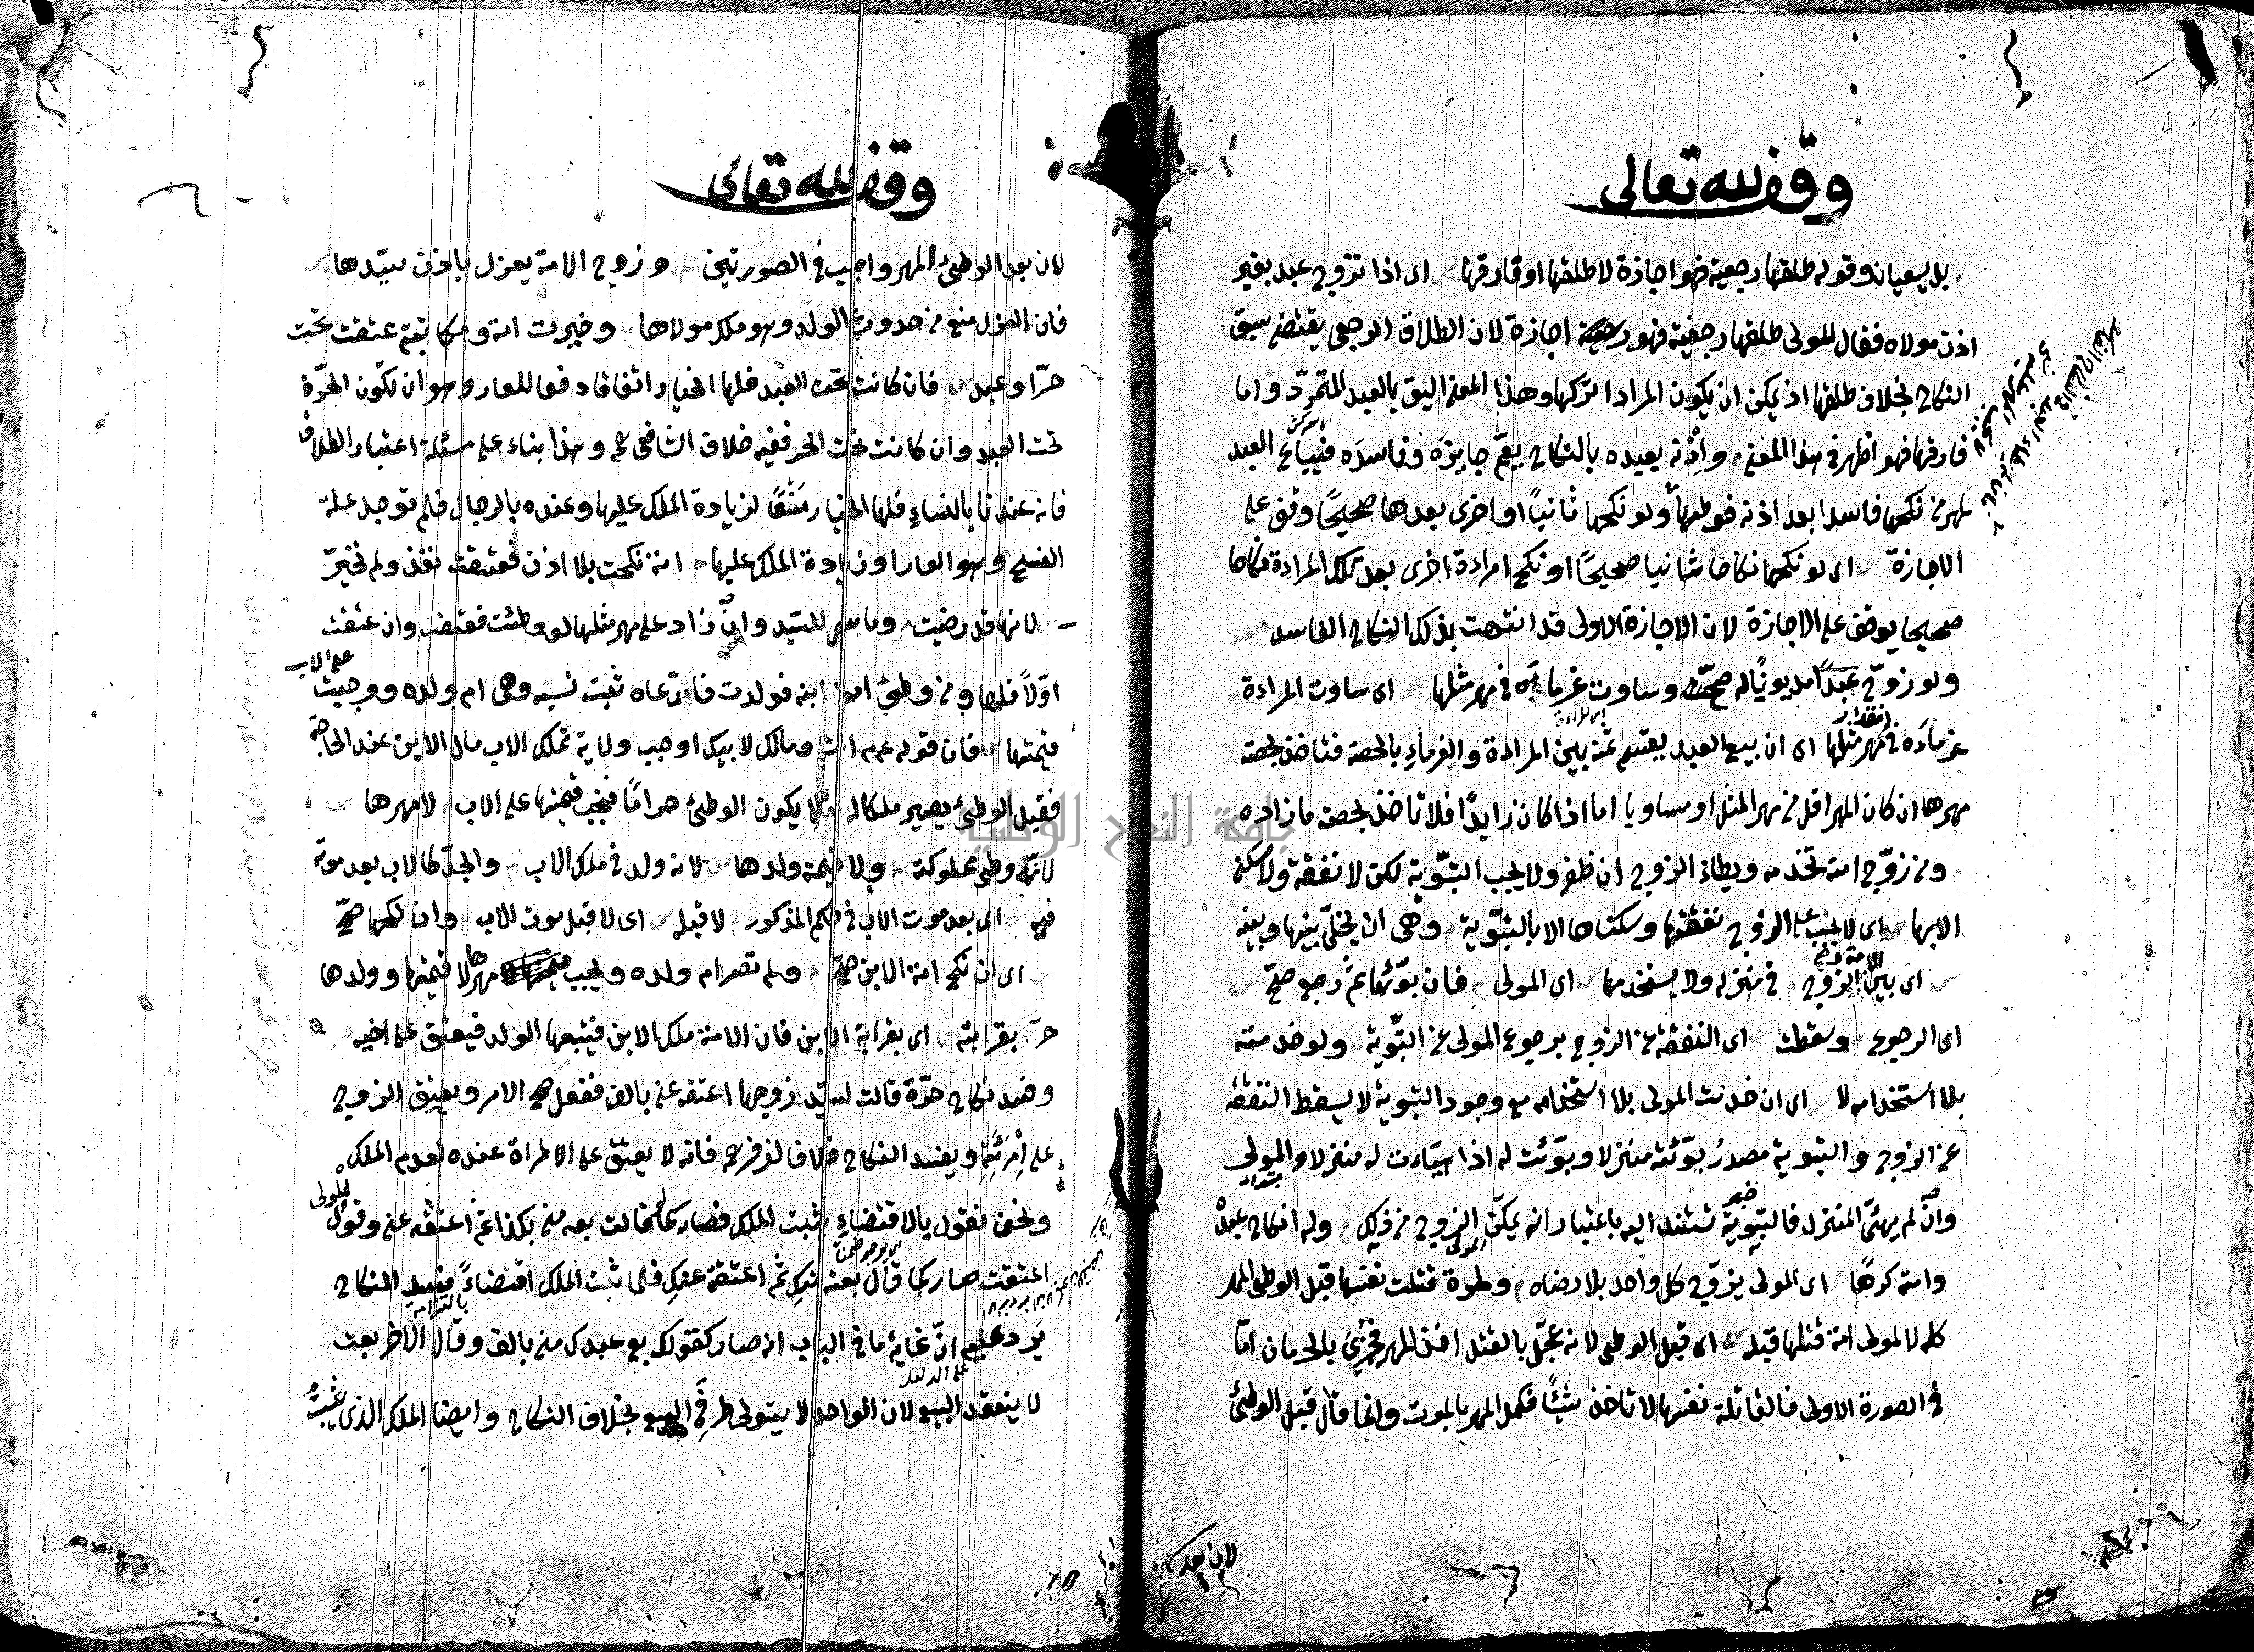 وقف لله تعالى
بل يسعيان وقوله طلقها رجعية فهو اجازة لا طلقها او فارقها اى اذا تزوج عبد بغير
اذن مولاه فقال المولى طلقها رجعية فهو اجازة لان الطلاق الرجعى يقتضى سبق
النكاح بخلاف طلقها اذ يمكن ان يكون المراد اتركها وهذا المعنى اليق بالعبد المتمرد واما
فارقها فهو اظهر فى هذا المعنى واذنه بعبده بالنكاح يعم جايزه وفاسده فيباع العبد
لمهر من نكحها فاسدا بعد اذنه فوطئها ولو نكحها ثانيًا او اخرى بعدها صحيحًا وقف على
الاجازة اى لو نكحها نكاحا ثانيا صحيحًا او نكح امراءة اخرى بعد تلك المراءة نكاحا
صحيحا يوقف على الاجازة لان الاجازة الاولى قد انتهت بذلك النكاح الفاسد
ولو زوّج عبدًا مديونًا له صحّ وساوت غرماءَه فى مهر مثلها اى ساوت المراءة
غرماءَه فى مهر مثلها اى ان بيع العبد يقسم ثمنه بين المراءة والغرماءِ بالحصة فتاخذ بحصة
مهرها ان كان المهر اقل من مهر المثل او مساويا اما اذا كان زايدًا فلا تاخذ بحصة ما زاده
ومن زوّج امته تخدمه ويطاء الزوج ان ظفر ولا يجب التبوية لكن لا نفقة ولا سكنى
الا بها اى لا يجب على الزوج نفقتها وسكناها الا بالتبوية وهى ان يخلّى بينها وبينه
اى بين الزوج فى منزله ولا يستخدمها اى المولى فان بوّئها ثمّ رجع صحّ
اى الرجوع وسقطت اى النفقة عن الزوج برجوع المولى عن التبوية ولو خدمته
بلا استخدامه لا اى ان خدمت المولى بلا استخدامه مع وجود التبوية لا يسقط النفقة
عن الزوج والتبوية مصدر بوّئته منزلا وبوّئت له اذا هيّاءت له منزلا والمولى
وان لم يهيّئ المنزل فالتبوية تسند اليه باعتبار انه يمكّن الزوج من ذلك وله انكاح عبده
وامته كرهًا اى المولى يزوّج كل واحد بلا رضاه ولحرة قتلت نفسها قبل الوطئ المهر
كله لا لمولى امة قتلها قبله اى قبل الوطى لانه عجّل بالقتل اخذ المهر فجزى بالحرمان امّا
فى الصورة الاولى فالقاتلة نفسها لا تاخذ شيئًا فكمل المهر بالموت وانما قال قبل الوطئ
لان بعد
وقف لله تعالى
لان بعد الوطئ المهر واجب فى الصورتين وزوج الامة يعزل باذن سيّدها
فان العزل منع من حدوث الولد وهو ملك مولاها وخيرت امة ومكاتبة عتقت تحت
حرّ او عبد فان كانت تحت العبد فلها الخيار اتفاقا دفعا للعار وهو ان تكون الحرّة
تحت العبد وان كانت تحت الحر ففيه خلاف الشافعى وهذا بناء على مسئلة اعتبار الطلاق
فانه عندنا بالنساءِ فلها الخيار لزيادة الملك عليها وعنده بالرجال فلم توجد علة
الفسخ وهو العار او زيادة الملك عليها امة نكحت بلا اذن فعتقت نفذ ولم تخيّر
لانها قد رضيت وما سمى للسيّد وان زاد على مهر مثلها لو وطئت فعتقت وان عتقت
اوّلاً فلها ومن وطئ امة ابنه فولدت فادّعاه ثبت نسبه وهى ام ولده ووجبت على الاب
قيمتها فان قوله انت ومالك لابيك اوجب ولاية تملك الاب مال الابن عند الحاجة
فقبل الوطئ يصير ملكا له لئلا يكون الوطئ حرامًا فيجب قيمتها على الاب لا مهرها
لانه وطى مملوكته ولا قيمة ولدها لانه ولد فى ملك الاب والجدّ كالاب بعد موته
فيه اى بعد موت الاب فى الحكم المذكور لا قبله اى لا قبل موت الاب وان نكحها صحّ
اى ان نكح امة الابن صحّ ولم تصر ام ولده ويجب مهرها لا قيمتها وولدها
حرّ بقرابته اى بقرابة الابن فان الامة ملك الابن فيتبعها الولد فيعتق على اخيه
وفسد نكاح حرّة قالت لسيّد زوجها اعتقه عنى بالف ففعل صح الامر ويعتق الزوج
على امرئته ويفسد النكاح خلافا لزفر فانه لا يعتق على الامراة عنده لعدم الملك
ونحن نقول بالاقتضاءِ يثبت الملك فصار كما قالت بعه منى بكذا ثم اعتقه عنى وقول المولى
اعتقت صار كما قال بعته منك ثم اعتقته عنك فلما ثبت الملك اقتضاءً فسد النكاح
يرد عليه انّ غاية ما فى الباب انه صار كقولك بع عبدك منى بالف وقال الاخر بعت
لا ينعقد البيع لان الواحد لا يتولى طرفى البيع بخلاف النكاح وايضا الملك الذى يثبت